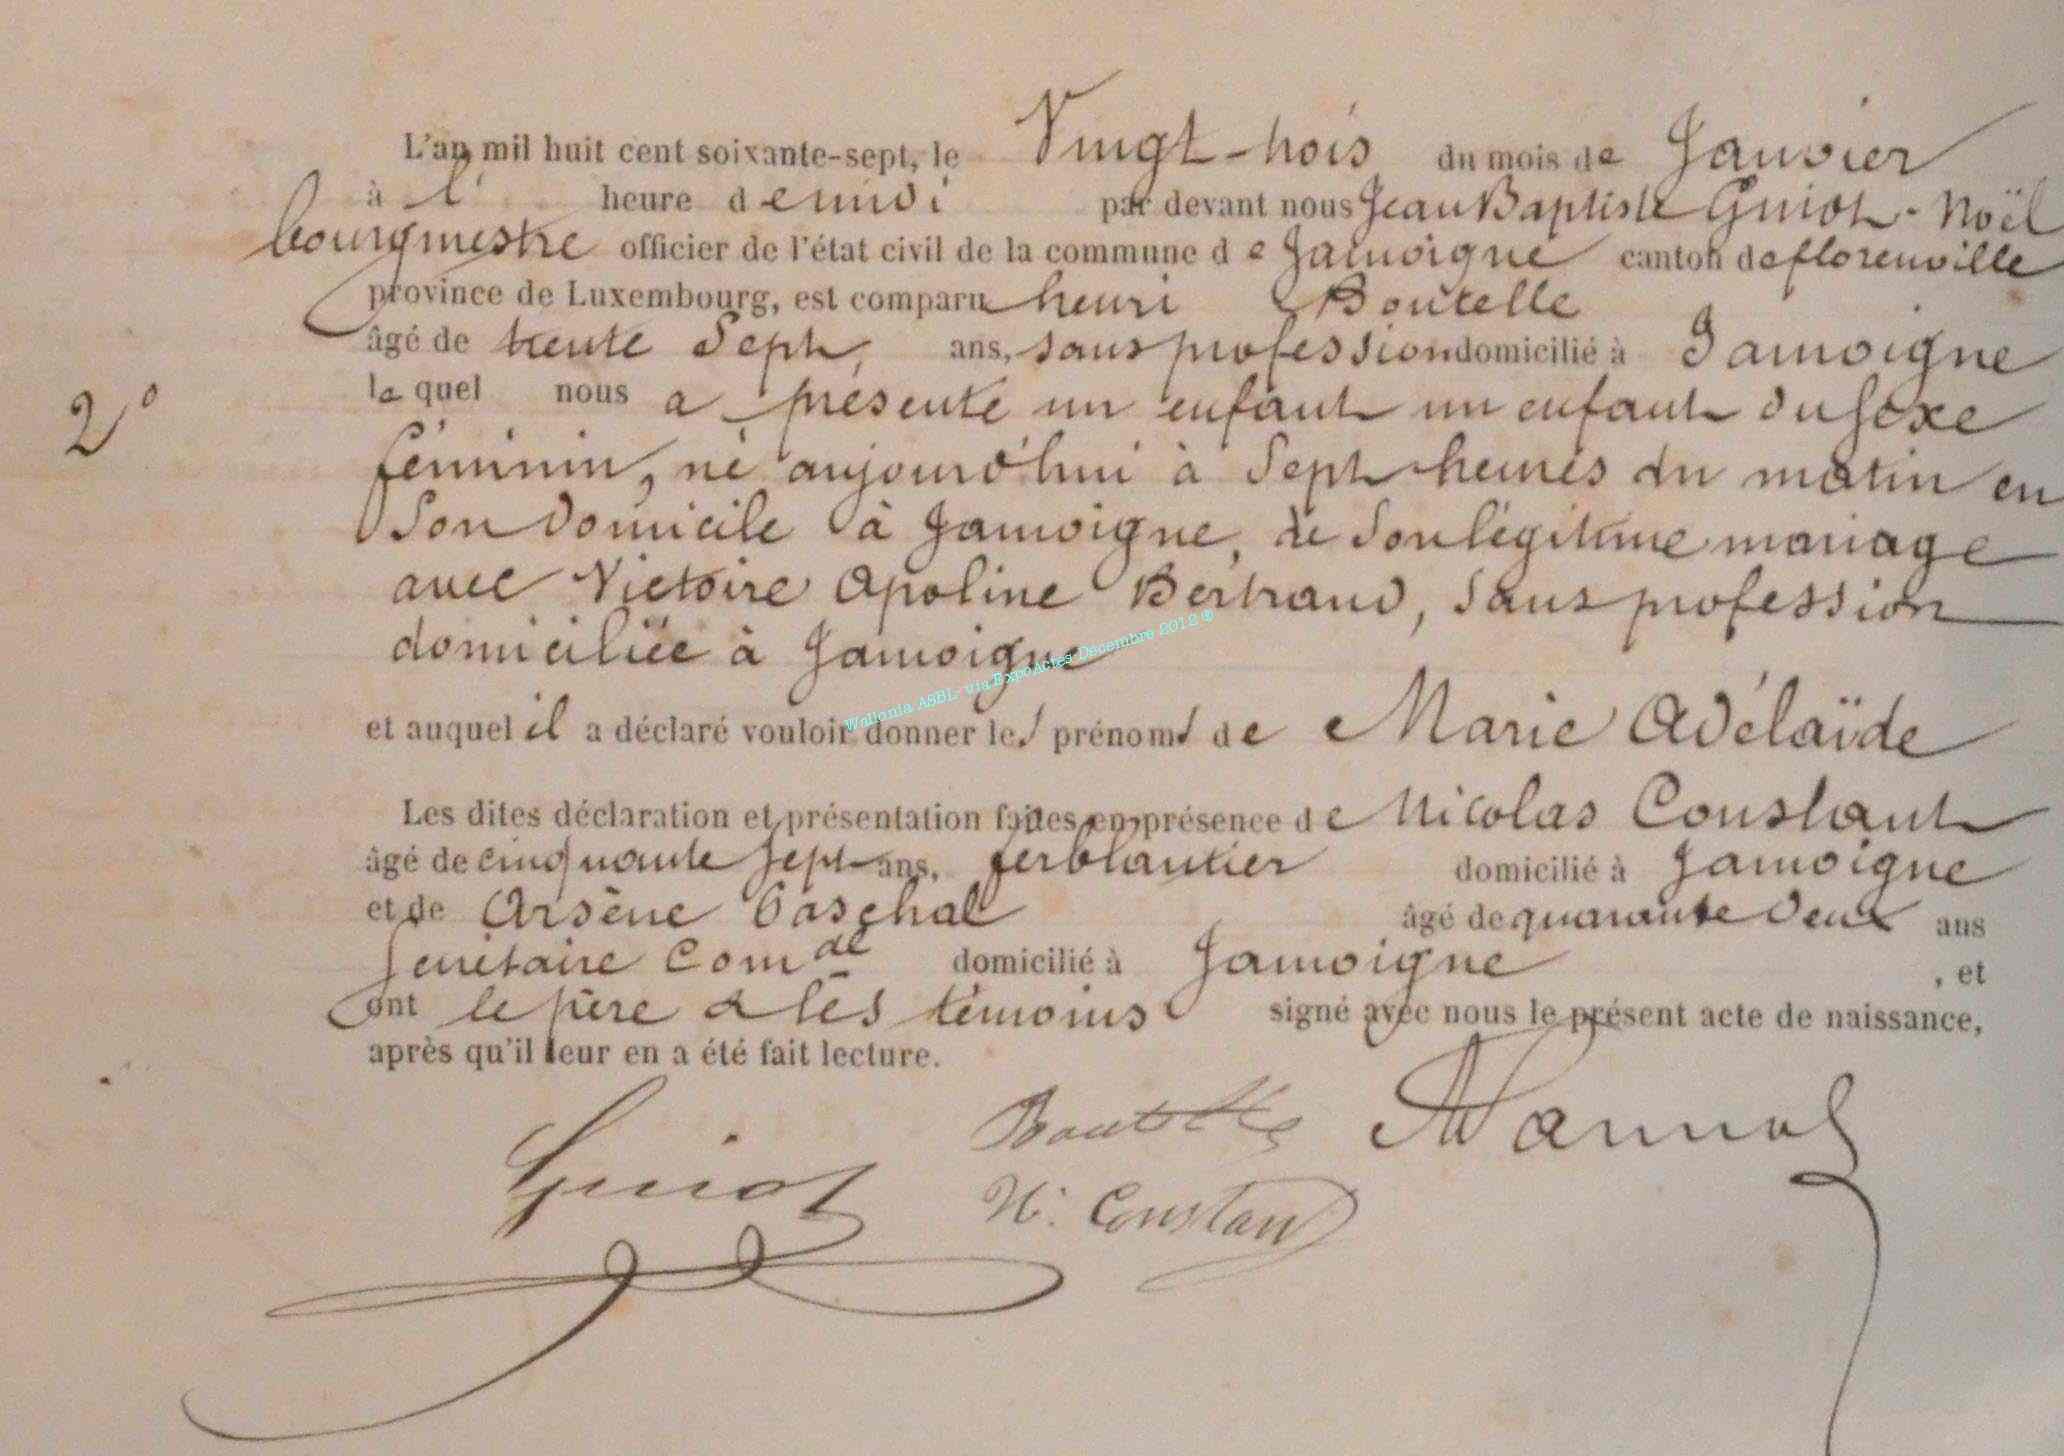 L'an mil huit cent soixante-sept, le Vingt-trois du mois de Janvier
à l' heure de midi par devant nous Jean Baptiste Guiot-Noël
bourgmestre officier de l'état civil de la commune de Jamoigne canton de florenville
province de Luxembourg, est comparu henri Boutelle
âgé de trente Sept ans, sans profession domicilié à Jamoigne
lequel nous a présenté un enfant un enfant du sexe
2°
féminin, né aujourd'hui à Sept heures du matin en
Son domicile à Jamoigne, de Son légitime mariage
avec Victoire Apoline Bertrand, Sans profession
domiciliée à Jamoigne
Wallonia ASBL- via ExpoActes-Decembre 2012 ®
et auquel il a déclaré vouloir donner les prénoms de Marie Adélaïde
Les dites déclaration et présentation faites en présence de Nicolas Constant
âgé de cinquante sept ans, ferblantier domicilié à Jamoigne
et de Arsène Paschal âgé de quarante deux ans
Secrétaire Com.al domicilié à Jamoigne , et
ont le père & les témoins signé avec nous le présent acte de naissance,
après qu'il leur en a été fait lecture.
Boutelle
Guiot
N. Constant